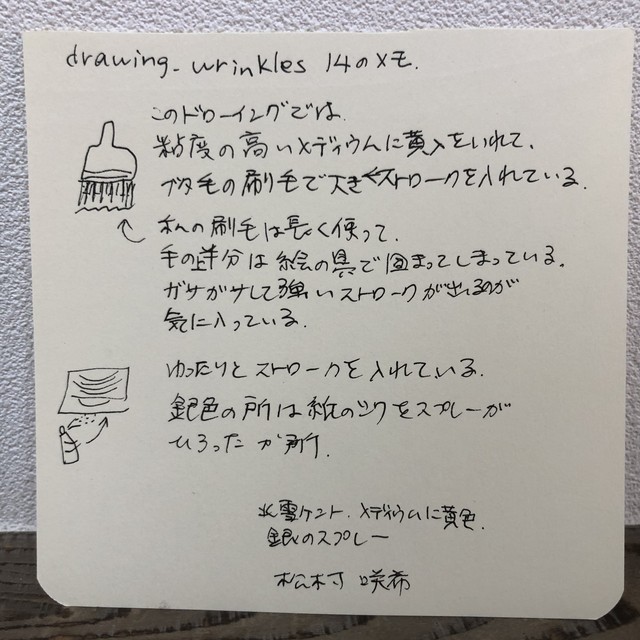 drawing - wrinkles 14のメモ.
このドローイングでは.
粘度の高いメディウムに黄色をいれて、
ブタ毛の刷毛で大きくストロークを入れている.
私の刷毛は長く使って.
毛の半分は絵の具で固まってしまっている.
ガサガサして強いストロークが出るのが
気に入っている.
ゆったりとストロークを入れている.
銀色の所は紙のシワをスプレーが
ひろったか所.
氷雪ケント. メディウムに黄色.
銀のスプレー
松村 咲希